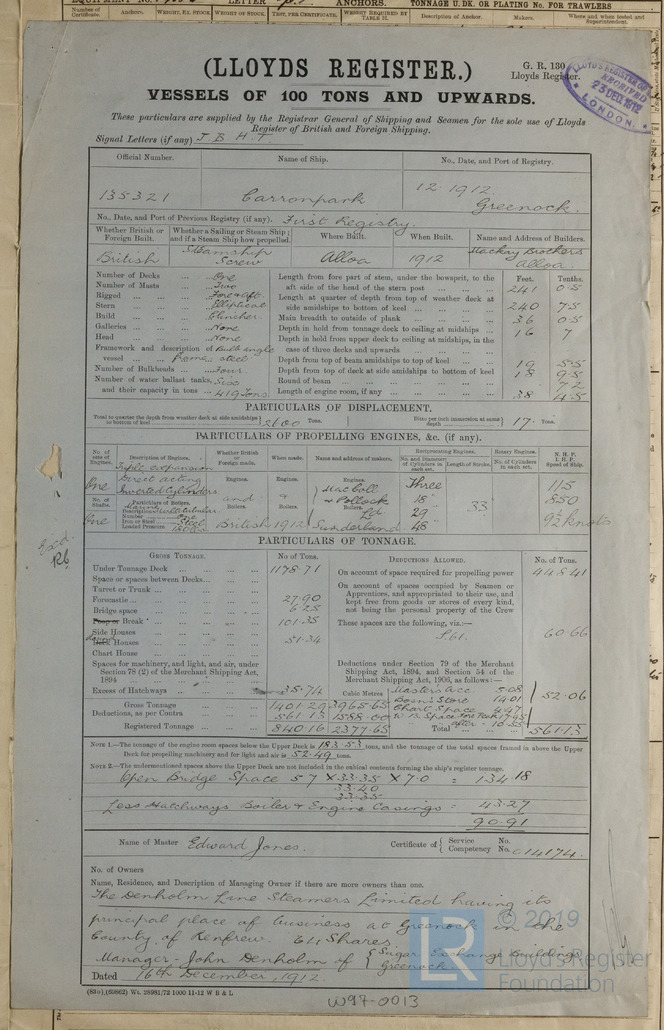 EQUIPMENT No.
LETTER
ANCHORS.
TONNAGE U. DK. OR PLATING No. FOR TRAWLERS
Number of Certificate.
Anchors.
WEIGHT, EX. STOCK
WEIGHT OF STOCK.
TEST, PER CERTIFICATE.
WEIGHT REQUIRED BY TABLE II.
Description of Anchor.
Makers.
Where and when tested and Superintendent.
(LLOYDS REGISTER.)
G. R. 130
Lloyds Register.
LLOYD'S REGISTER OF
RECEIVED
23 DEC 1912
LONDON.
VESSELS OF 100 TONS AND UPWARDS.
These particulars are supplied by the Registrar General of Shipping and Seamen for the sole use of Lloyds
Register of British and Foreign Shipping.
Signal Letters (if any) J B H T
Official Number. Name of Ship. No., Date, and Port of Registry.
135321 Carronpark 12. 1912.
Greenock.
No., Date, and Port of Previous Registry (if any). First Registry.
Whether British or Foreign Built.
Whether a Sailing or Steam Ship; and if a Steam Ship how propelled.
Where Built.
When Built.
Name and Address of Builders.
British
Steamship
Screw
Alloa
1912
Mackay Brothers
Alloa
Number of Decks One
Number of Masts Two
Rigged Fore & aft
Stern Elliptical
Build Clincher
Galleries None
Head None
Framework and description of Bulb angle
vessel frames steel
Number of Bulkheads Four
Number of water ballast tanks, Six
and their capacity in tons 419 Tons
Feet. Tenths.
Length from fore part of stem, under the bowsprit, to the
aft side of the head of the stern post 241 0.5
Length at quarter of depth from top of weather deck at
side amidships to bottom of keel 240 7.5
Main breadth to outside of plank 36 0.5
Depth in hold from tonnage deck to ceiling at midships 16 7
Depth in hold from upper deck to ceiling at midships, in the
case of three decks and upwards
Depth from top of beam amidships to top of keel 19 5.5
Depth from top of deck at side amidships to bottom of keel 18 9.5
Round of beam 7 2
Length of engine room, if any 38 4.5
PARTICULARS OF DISPLACEMENT.
Total to quarter the depth from weather deck at side amidships to bottom of keel 2600 Tons.
Ditto per inch immersion at same depth 17. Tons.
PARTICULARS OF PROPELLING ENGINES, &c. (if any).
No. of sets of Engines.
Description of Engines.
Whether British or Foreign made.
When made.
Name and address of makers.
Reciprocating Engines.
No. and Diameter of Cylinders in each set.
Length of Stroke.
Rotary Engines.
No. of Cylinders in each set.
N. H. P.
I. H. P.
Speed of Ship.
One
Triple expansion
Direct acting
Inverted Cylinders
Engines. Engines. Engines.
Three 115
No. of Shafts.
Particulars of Boilers.
Description Multitubular
Number One
Iron or Steel Steel
Loaded Pressure 180 lbs
One
and & MacColl
& Pollock
Ld.
Boilers. Boilers. Boilers.
British 1912 Sunderland
18"
29
48"
33
850
9½ knots
PARTICULARS OF TONNAGE.
GROSS TONNAGE. No. of Tons.
Under Tonnage Deck 1178.71
Space or spaces between Decks
Turret or Trunk
Forecastle 27.90
Bridge space 6.25
Poop or Break 101.35
Side Houses
Deck Houses 51.34
Chart House
Spaces for machinery, and light, and air, under
Section 78 (2) of the Merchant Shipping Act,
1894
Excess of Hatchways 35.74
Cubic Metres
Gross Tonnage 1401.29 3965.65
Deductions, as per Contra 561.13 1588.00
Registered Tonnage 840.16 2377.65
DEDUCTIONS ALLOWED. No. of Tons.
On account of space required for propelling power 448.41
On account of spaces occupied by Seamen or
Apprentices, and appropriated to their use, and
kept free from goods or stores of every kind,
not being the personal property of the Crew
These spaces are the following, viz.:— 60.66
Deductions under Section 79 of the Merchant
Shipping Act, 1894, and Section 54 of the
Merchant Shipping Act, 1906, as follows:—
Master's Acc. 5.08
Bosn's Store 14.01
Chart Space 4.47
W. B. Space Fore Peak 17.95
" " after " 10.55
52.06
Total 561.13
NOTE 1.—The tonnage of the engine room spaces below the Upper Deck is 183.53 tons, and the tonnage of the total spaces framed in above the Upper
Deck for propelling machinery and for light and air is 52.49 tons.
NOTE 2.—The undermentioned spaces above the Upper Deck are not included in the cubical contents forming the ship's register tonnage.
Open Bridge Space 57 × 33.35 × 7.0 = 134.18
33.40
33.35
Less Hatchways Boiler & Engine Casings = 43.27
90.91
Name of Master Edward Jones. Certificate of { Service No.
Competency No. 014174.
No. of Owners
Name, Residence, and Description of Managing Owner if there are more owners than one.
The Denholm Line Steamers Limited having its
principal place of business at Greenock in the
County of Renfrew. 64 Shares
Manager - John Denholm of { Sugar Exchange Buildings
Greenock.
Dated 16th December, 1912.
(830),(69862) Wt. 28981/72 1000 11-12 W B & L
W97-0013
LR
© 2019
Lloyd's Register
Foundation